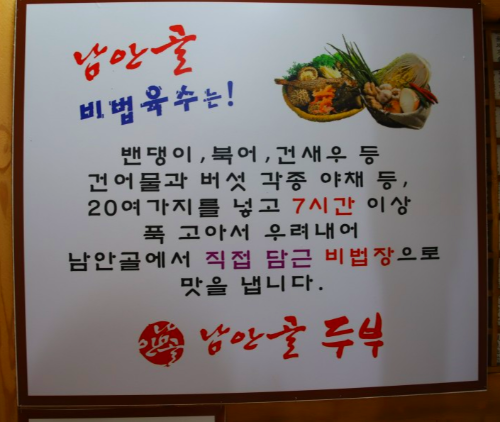 남안골
비법육수는!
밴댕이,북어,건새우 등
건어물과 버섯 각종 야채 등,
20여가지를 넣고 7시간 이상
푹 고아서 우려내어
남안골에서 직접 담근 비법장으로
맛을 냅니다.
남안골 남안골 두부